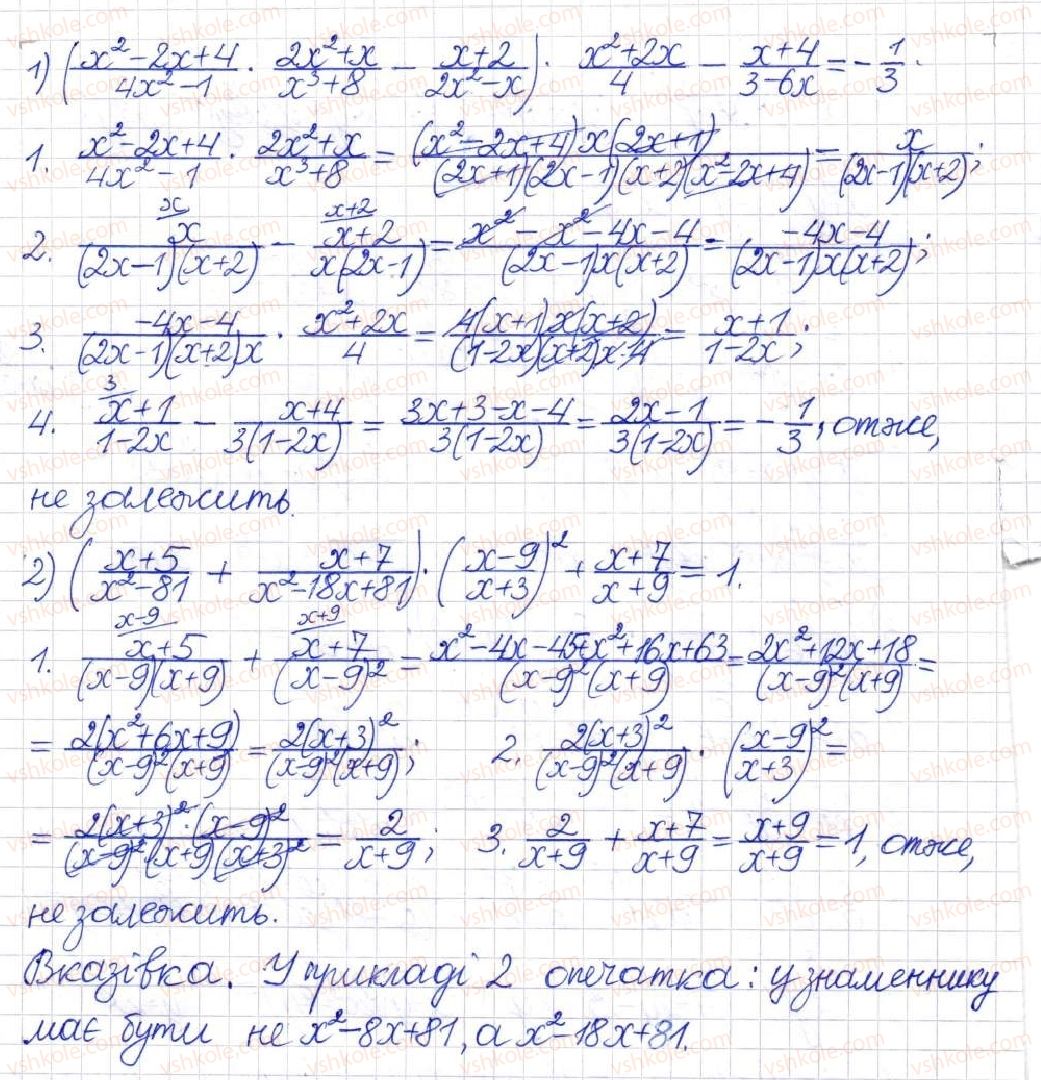 1) ((x²-2x+4)/(4x²-1) · (2x²+x)/(x³+8) - (x+2)/(2x²-x)) · (x²+2x)/4 - (x+4)/(3-6x) = -1/3.
1. (x²-2x+4)/(4x²-1) · (2x²+x)/(x³+8) = ((x²-2x+4)x(2x+1))/((2x+1)(2x-1)(x+2)(x²-2x+4)) = x/((2x-1)(x+2));
2. x/ x/((2x-1)(x+2)) - x+2/ (x+2)/(x(2x-1)) = (x²-x²-4x-4)/((2x-1)x(x+2)) = (-4x-4)/((2x-1)x(x+2));
3. (-4x-4)/((2x-1)(x+2)x) · (x²+2x)/4 = (4(x+1)x(x+2))/((1-2x)(x+2)x·4) = (x+1)/(1-2x);
4. 3/ (x+1)/(1-2x) - (x+4)/(3(1-2x)) = (3x+3-x-4)/(3(1-2x)) = (2x-1)/(3(1-2x)) = -1/3, отже,
не залежить.
2) ((x+5)/(x²-81) + (x+7)/(x²-18x+81)) · ((x-9)/(x+3))² + (x+7)/(x+9) = 1.
1. x-9/ (x+5)/((x-9)(x+9)) + x+9/ (x+7)/(x-9)² = (x²-4x-45+x²+16x+63)/((x-9)²(x+9)) = (2x²+12x+18)/((x-9)²(x+9)) =
= (2(x²+6x+9))/((x-9)²(x+9)) = (2(x+3)²)/((x-9)²(x+9)); 2. (2(x+3)²)/((x-9)²(x+9)) · ((x-9)/(x+3))² =
= (2(x+3)²·(x-9)²)/((x-9)²·(x+9)(x+3)²) = 2/(x+9); 3. 2/(x+9) + (x+7)/(x+9) = (x+9)/(x+9) = 1, отже,
не залежить.
Вказівка. У прикладі 2 опечатка: у знаменнику
має бути не x²-8x+81, а x²-18x+81.